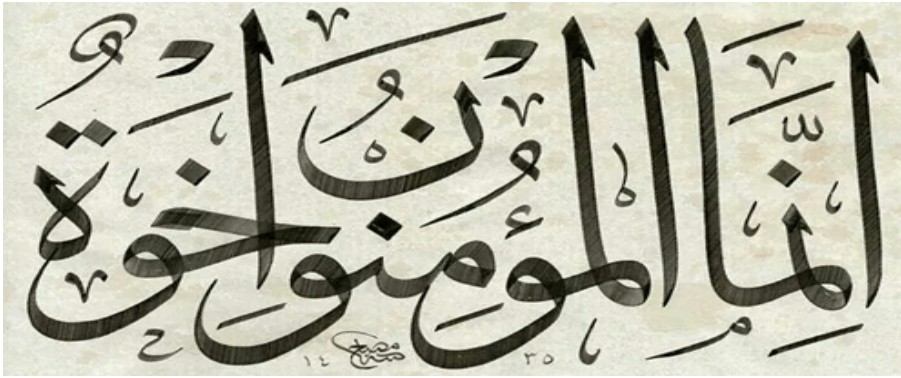 إِنَّمَا الْمُؤْمِنُونَ إِخْوَةٌ
١٤٣٥